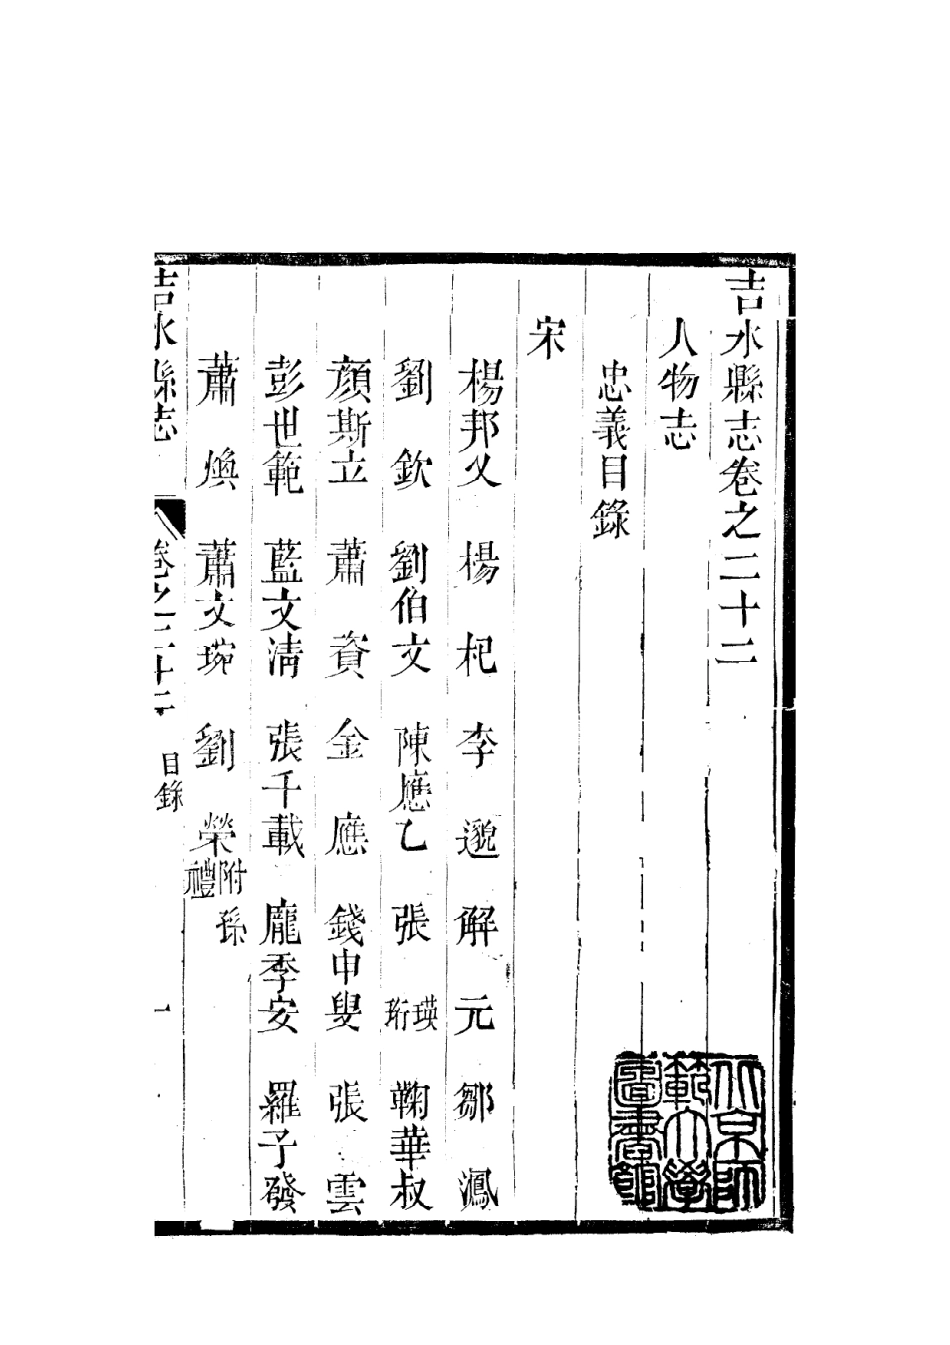 吉水縣志卷之二十二
人物志
忠義目錄
宋
楊邦乂 楊杞 李邈 解元 鄒㵯
劉欽 劉伯文 陳應乙 張瑛珩 鞠華叔
顏斯立 蕭資 金應 錢申叟 張雲
彭世範 藍文清 張千載 龐季安 羅子發
蕭煥 蕭文琬 劉榮附孫禮
吉水縣志 卷之二十二 目錄 一
北京師範大學圖書館